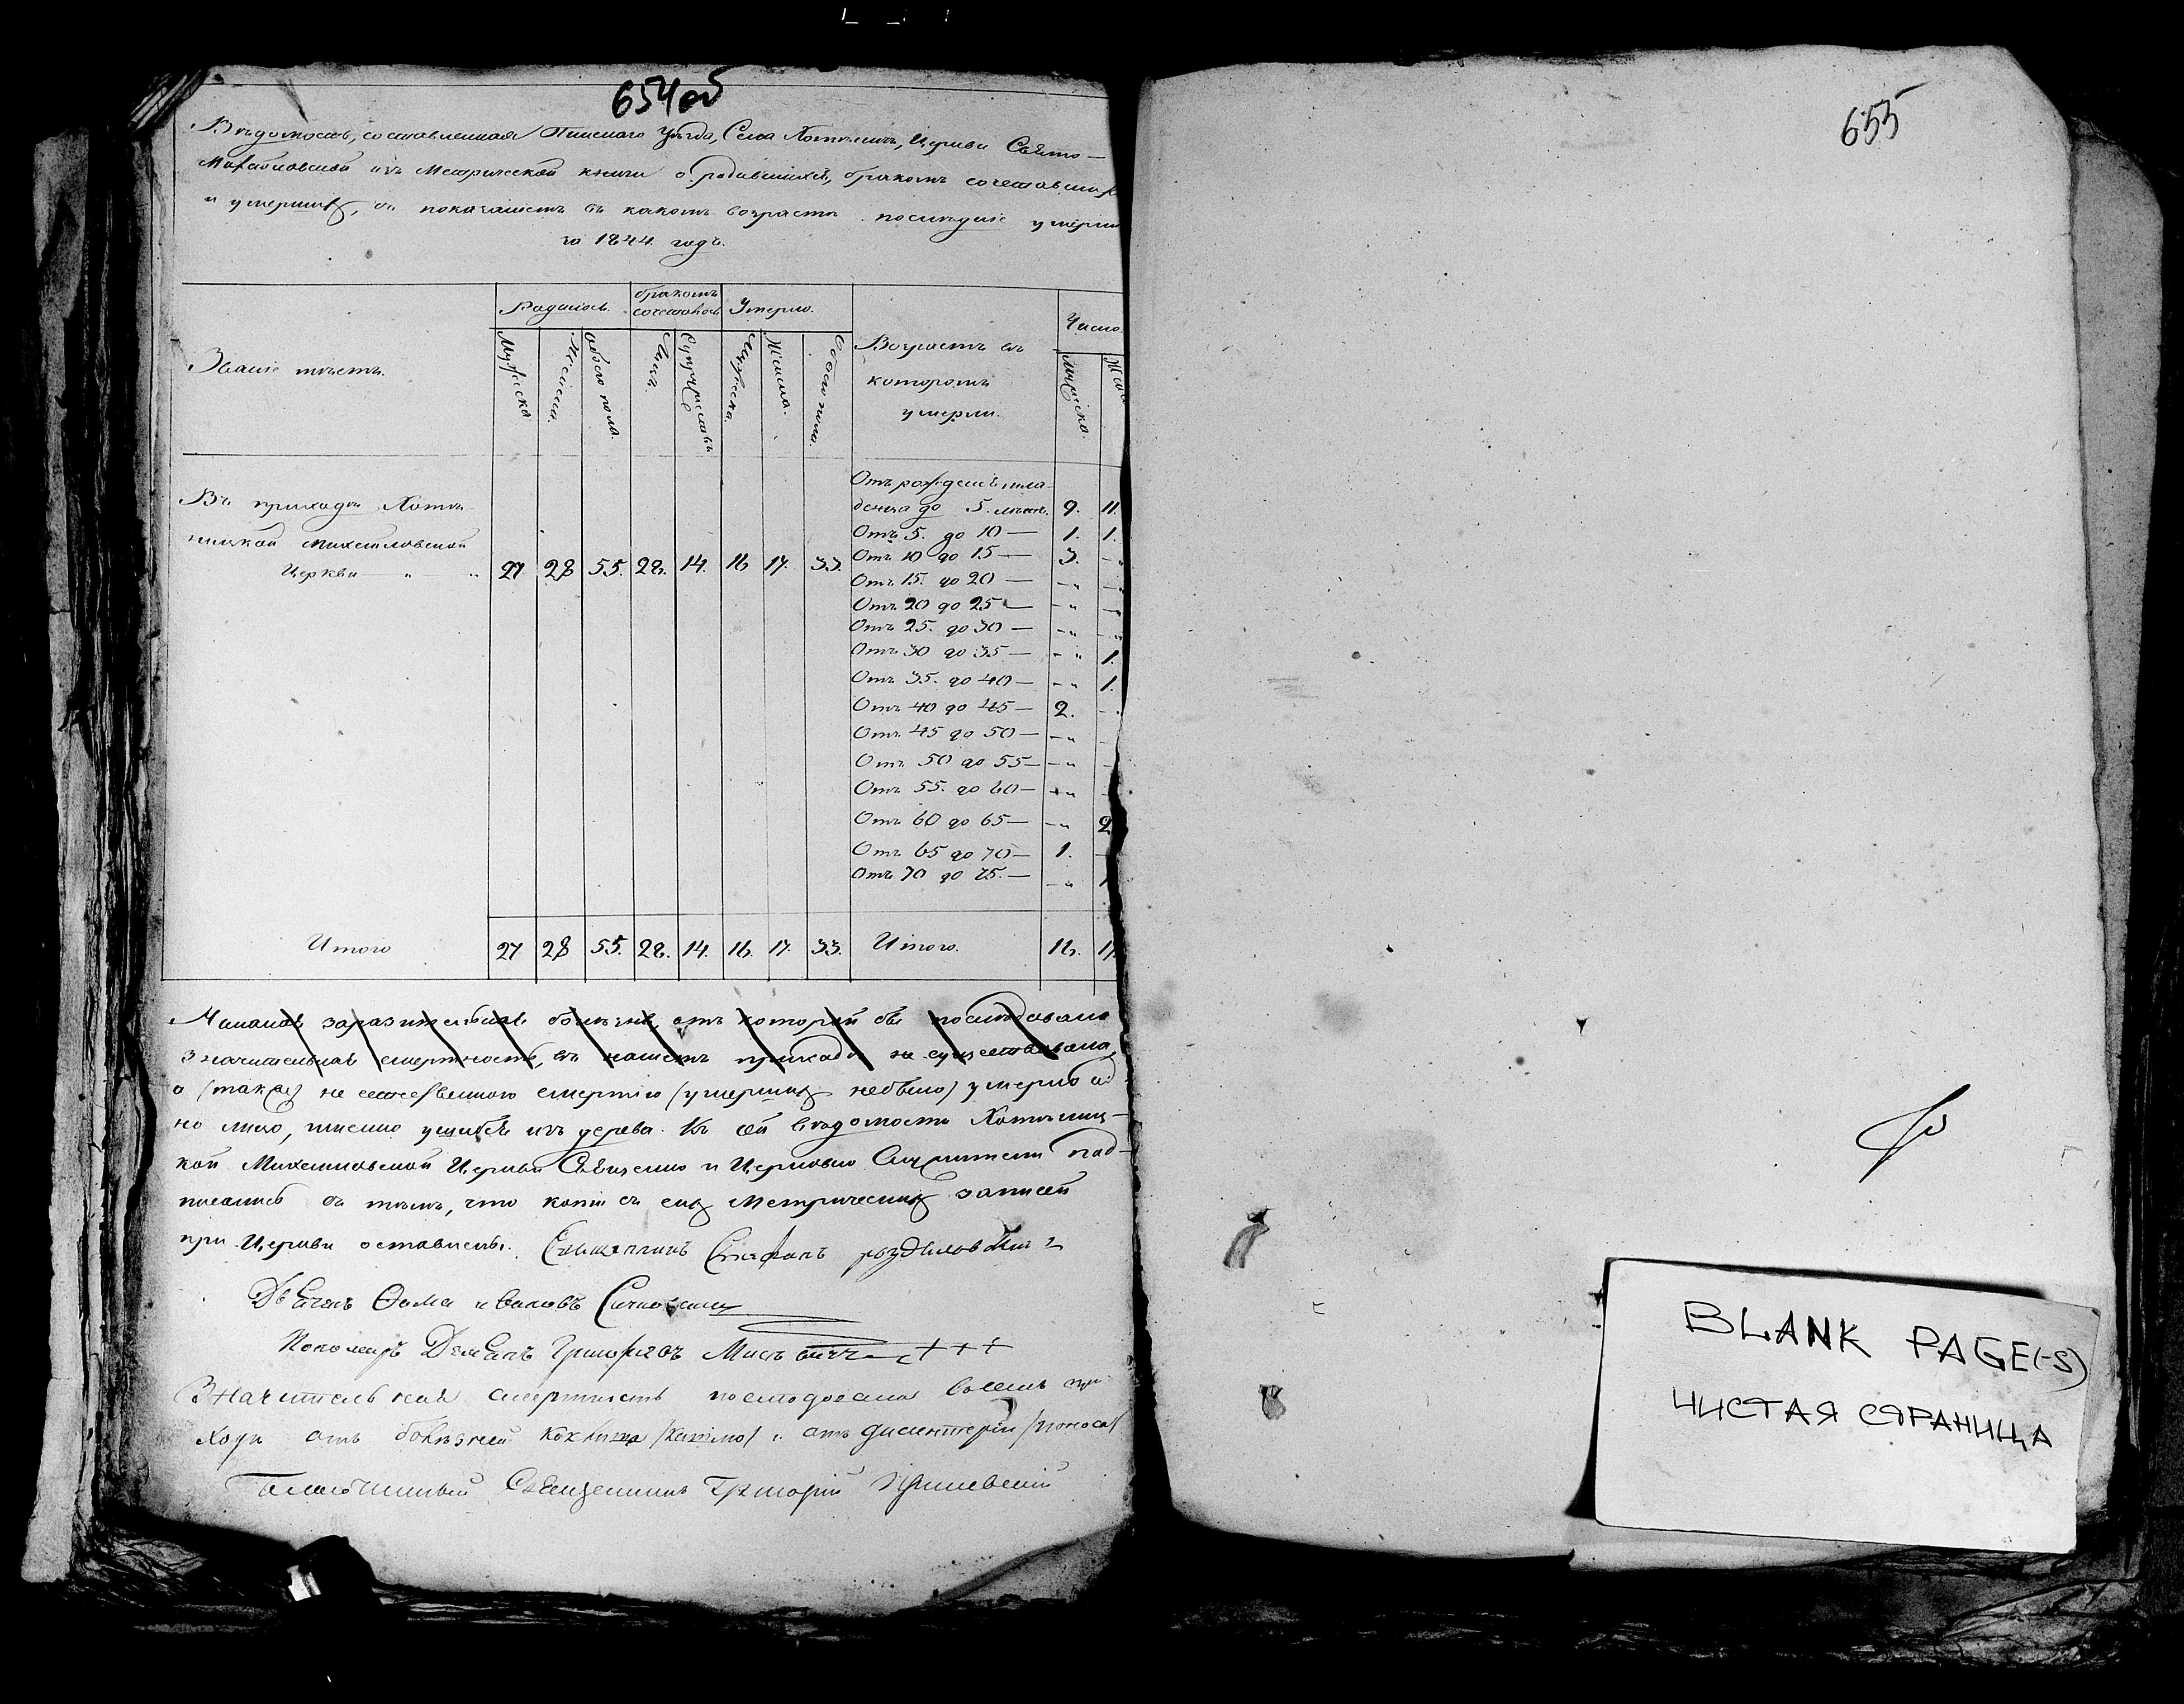 654об
Вѣдомость, составленная Пинскаго Уѣзда, Села Хотыничь, Церкви Свято-
Михайловской изъ Метрической книги о родившихся, бракомъ сочетавших
и умершихъ, съ показаніемъ въ какомъ возрастѣ послѣдніе умерли
за 1844. годъ.
Званіе мѣстъ.
Родилось.
бракомъ
сочеталось
Умерло.
Возрастъ въ
которомъ
умерли.
Число.
Мужеска
Женска.
Обоего пола.
Лицъ.
Супружествъ
Мужеска.
Женска.
Обоего пола.
Мужеска.
Жен
Въ приходѣ Хоты
ницкой Михайловской
Церкви — „ — „
27 28 55. 28. 14. 16 17. 33.
Отъ рожденія мла-
денца до 5. лѣтъ. 9. 11.
Отъ 5. до 10 — 1. 1.
Отъ 10 до 15 — 3. -„
Отъ 15. до 20 — -„ -„
Отъ 20 до 25 — -„ -„
Отъ 25. до 30 — -„ -„
Отъ 30 до 35 — -„ 1.
Отъ 35. до 40 — -„ 1.
Отъ 40 до 45 — 2. -
Отъ 45 до 50 — -„ -
Отъ 50 до 55 — -„ -
Отъ 55. до 60 — -„ -
Отъ 60 до 65 — -„ 2
Отъ 65 до 70 — 1. -
Отъ 70 до 75. — -„ 1
Итого 27 28 55. 28. 14. 16. 17. 33. Итого. 16. 17.
заразительная болѣзнь, отъ которой бы послѣдовала
значительная смертность, въ нашемъ приходѣ не существовала,
а /также/ не естественною смертію /умершихъ небыло/ умерло од
но лицо, именно изъ дерева. Къ сей вѣдомости Хотыниц-
кой Михайловской Церкви Священно и Церковно Служители под-
писались въ томъ, что копіи съ сихъ Метрическихъ записей
при Церкви оставлены. Священникъ Стефанъ
Дьячекъ Ѳома Ивановъ
Пономарь Григорьевъ +++
Значительная смертность послѣдовала въ семъ при-
ходѣ отъ болѣзней и отъ дисентеріи /поноса/
Благочинный Священникъ Григорій
655
BLANK PAGE(-S)
ЧИСТАЯ СТРАНИЦА